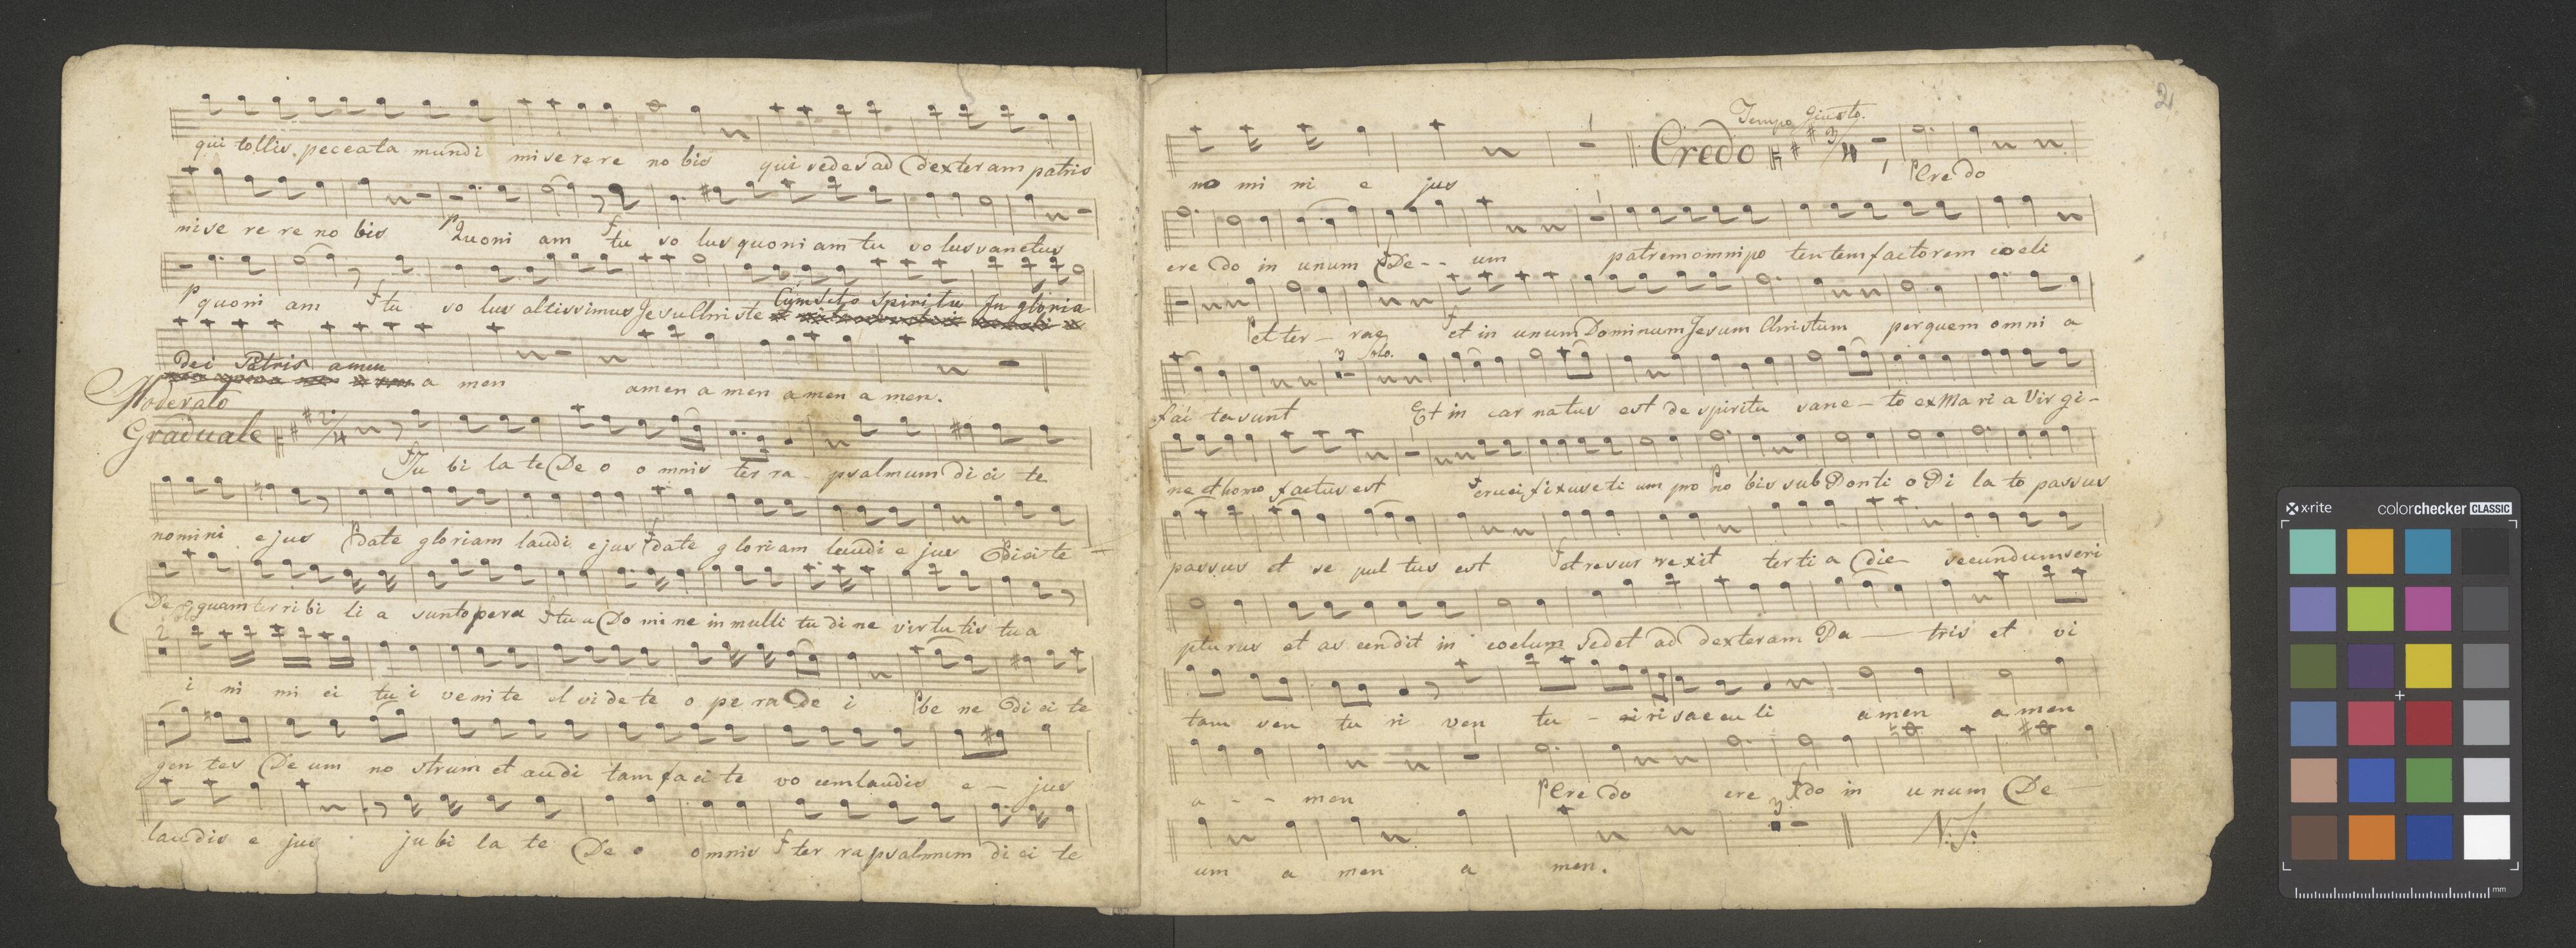 qui tollis peccata mundi miserere nobis qui sedes ad dexteram patris
mise re re no bis p Quoni am f tu so lus quoniam tu solus sanctus
p quoni am f tu so lus altissimus Jesu Christe Cum Scto Spiritu In gloria
Dei Patris amen a men amen a men amen a men.
Moderato
Graduale 2/4
f Ju bi la te Deo o omnis ter ra psalmum di ci te
nomini ejus p Date gloriam laudi ejus f date gloriam laudi e jus Dicite
Deo quam terri bi li a sunt opera f tua Domine in multi tu di ne virtutis tua
2
i ni mi ci tu i venite et vi de te o pe ra De i p be ne di ci te
gen tes De um no strum et audi tam fa ci te vo cem laudis e - jus
laudis e jus ju bi la te De o omnis f ter ra psalmum di ci te
2
no mi ni e jus
1
Tempo Giusto.
Credo 3/4 1 p Cre do
cre do in unum f De - - um 1 patrem omnipo tentem factorem coeli
p et ter - rae f et in unum Dominum Jesum Christum per quem omni a
fac ta sunt 3 Solo. Et in car natus est de spiritu sanc - to ex Ma ri a Vir gi -
ne et homo factus est 1 f cruci fixus eti um pro no bis sub Ponti o Pi la to passus
passus et se pul tus est f et resur rexit terti a die secundum scri
pturas et as cendit in coelum sedet ad dexteram Pa - tris et vi
tam ven tu ri ven tu - ri ri saecu li amen amen
a - - men p Cre do cre f do in unum De
um a men a men. 3 N. S: